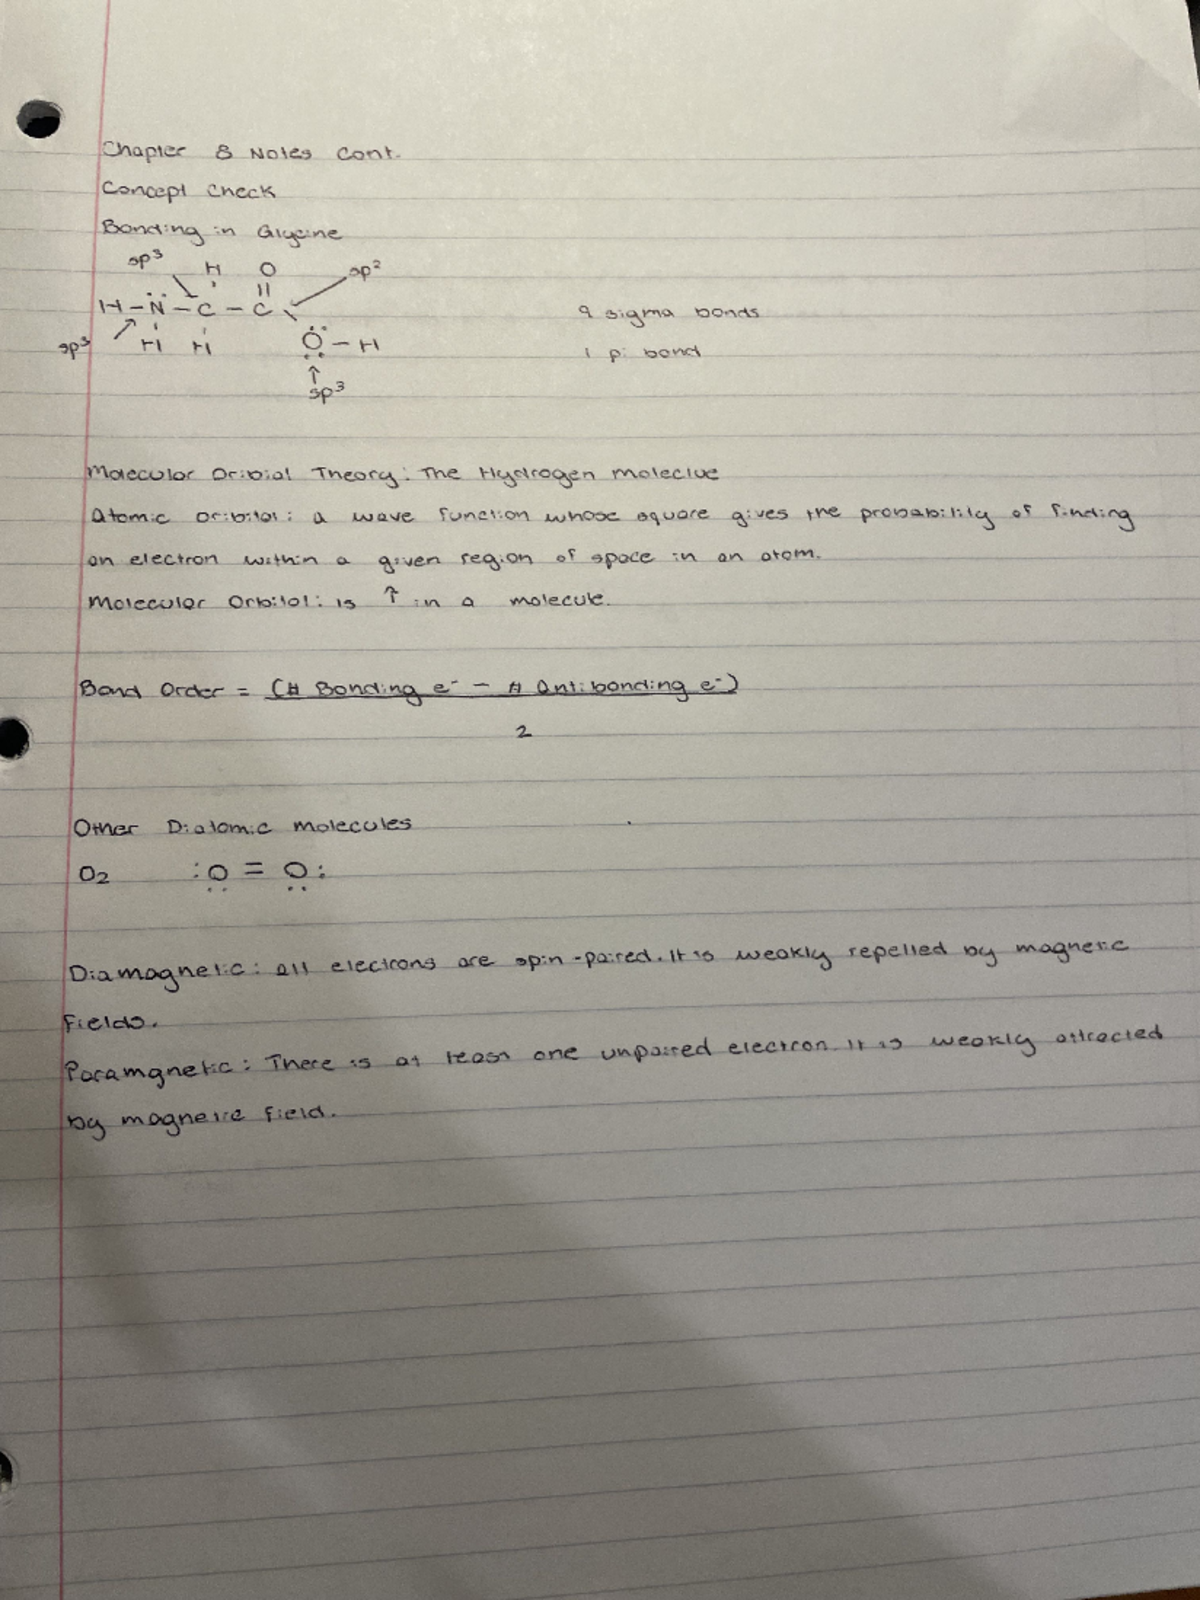 Chapter 8 Notes Cont.
Concept Check
Bonding in Glycine
sp³ H O sp²
H – N̈ – C – C
sp³ H H Ö – H
sp³
9 sigma bonds
1 pi bond
Molecular Oribial Theory: The Hydrogen Moleclue
Atomic oribital: a wave function whose square gives the probability of finding
an electron within a given region of space in an atom.
Molecular Orbital: is ↑ in a molecule.
Bond Order = (# Bonding e⁻ – # Antibonding e⁻)
2
Other Diatomic Molecules
O₂ :O = O:
Diamagnetic: all electrons are spin-paired. It is weakly repelled by magnetic
fields.
Paramgnetic: There is at least one unpaired electron. It is weakly attracted
by magnetic field.